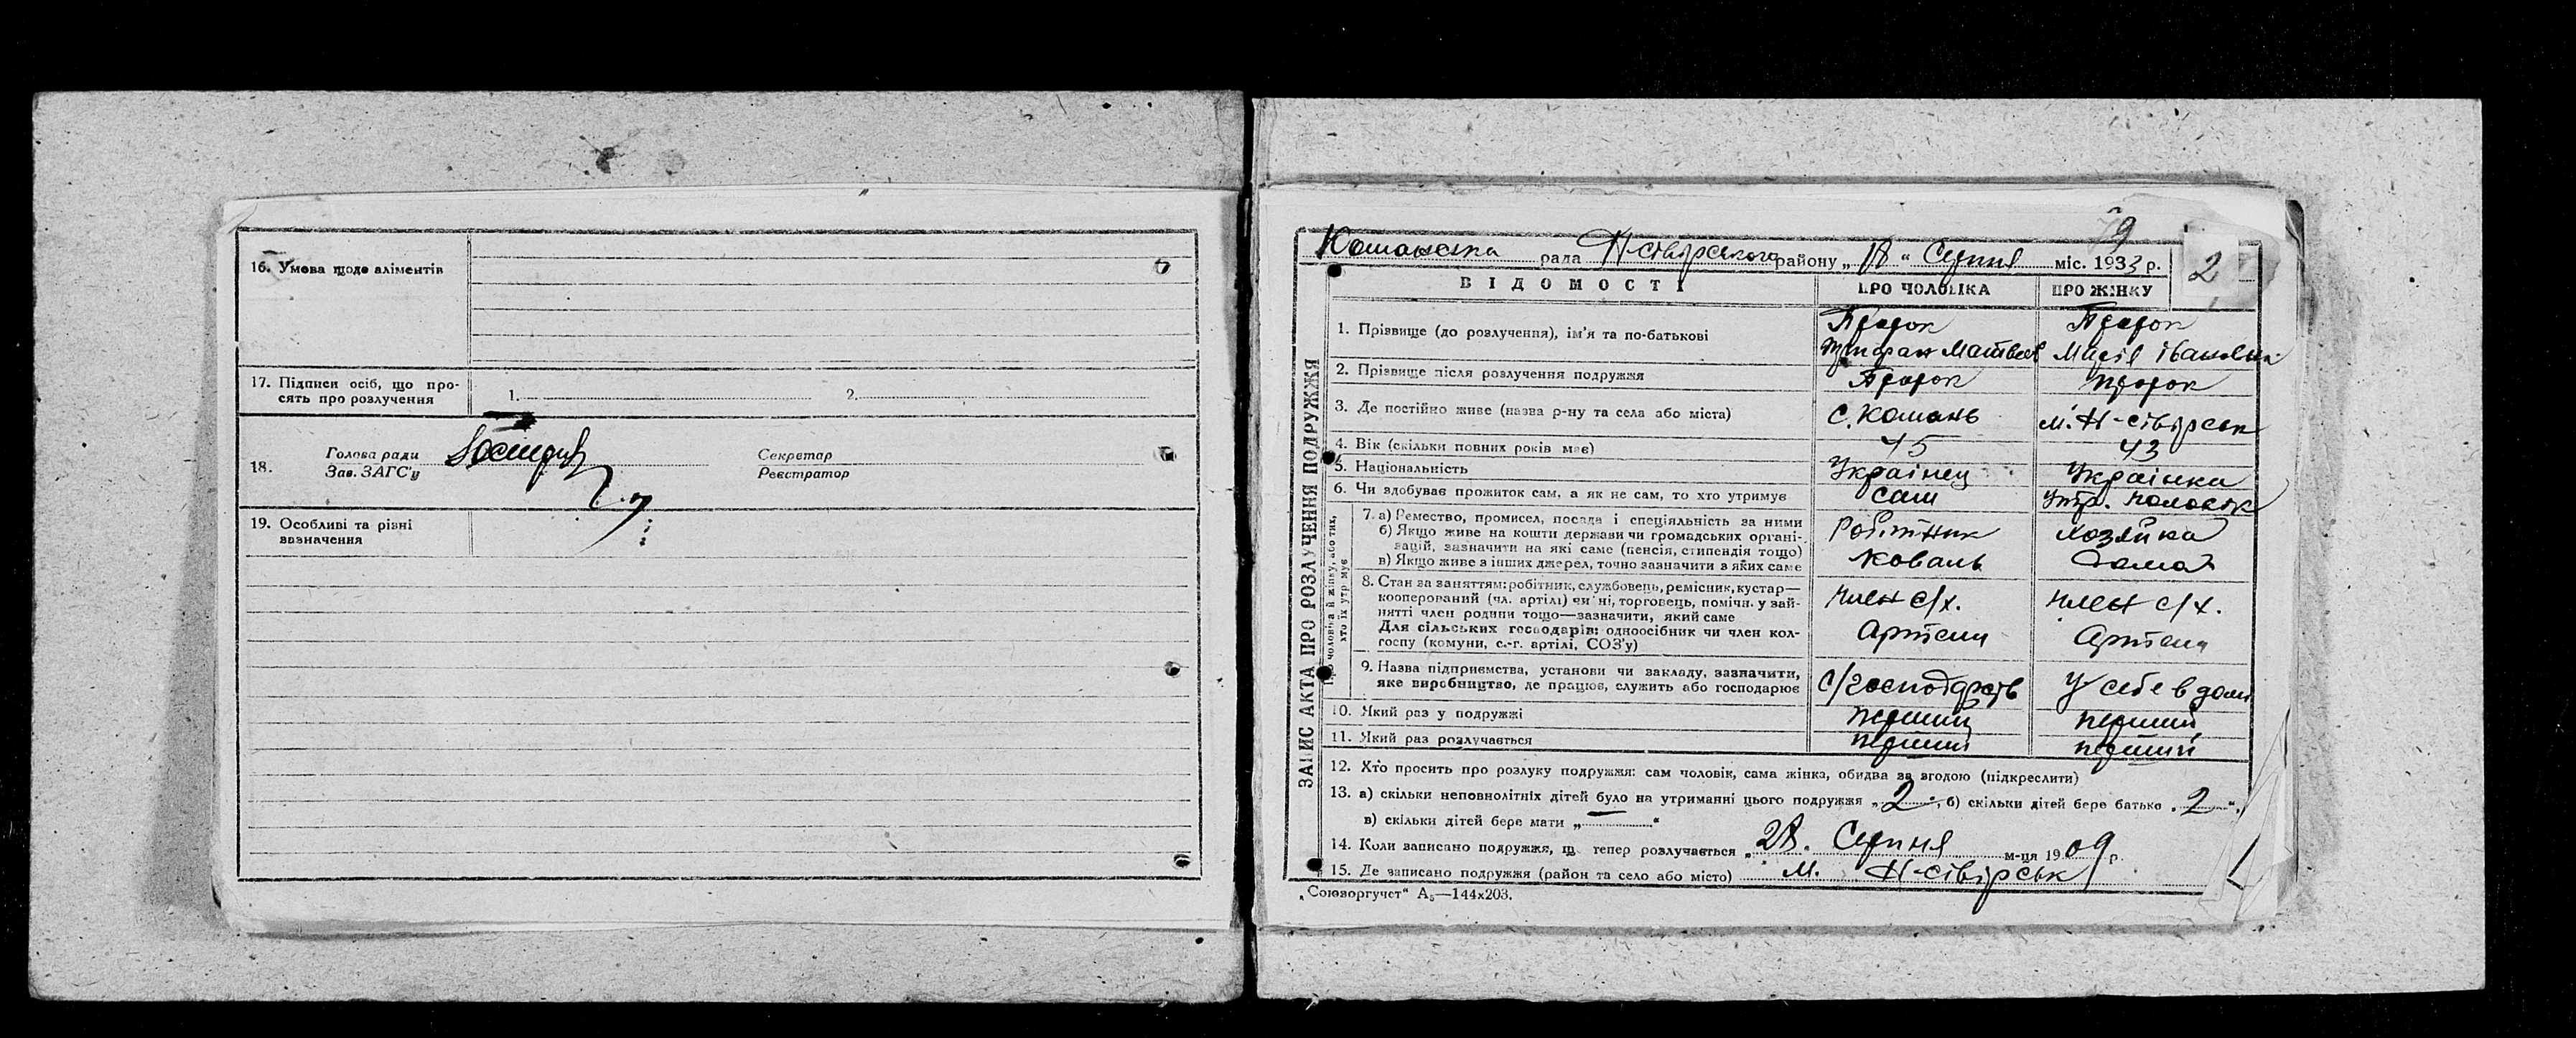 16. Умова щодо аліментів
17. Підписи осіб, що про-
сять про розлучення
1. 2.
18.
Голова ради
Зав. ЗАГС'у
Секретар
Реєстратор
19. Особливі та різні
визначення
79
Команська рада Н-Сіверського району „18“ Серпня міс. 1933 р.
2
ВІДОМОСТІ
ПРО ЧОЛОВІКА
ПРО ЖІНКУ
ЗАПИС АКТА ПРО РОЗЛУЧЕННЯ ПОДРУЖЖЯ
1. Прізвище (до розлучення), ім'я та по-батькові
Матвеев
Івановна
2. Прізвище після розлучення подружжя
3. Де постійно живе (назва р-ну та села або міста)
С. Комань
м. Н-Сіверськ
4. Вік (скільки повних років має)
45
43
5. Національність
Українец
Українка
6. Чи здобуває прожиток сам, а як не сам, то хто утримує
сам
утр. чоловік
Про чоловіка й жінку, або тих,
хто їх утримує
7. а) Ремество, промисел, посада і спеціяльність за ними
б) Якщо живе на кошти держави чи громадських органі-
зацій, зазначити на які саме (пенсія, стипендія тощо)
в) Якщо живе з інших джерел, точно зазначити з яких саме
Робітник
коваль
хозяйка
дома
8. Стан за заняттям: робітник, службовець, ремісник, кустар—
кооперований (чл. артілі) чи ні, торговець, помічн. у зай-
нятті член родини тощо—зазначити, який саме
Для сільських господарів: одноосібник чи член кол-
госпу (комуни, с.-г. артілі, СОЗ'у)
член с/х.
Артели
член с/х.
Артели
9. Назва підприємства, установи чи закладу, зазначити,
яке виробництво, де працює, служить або господарює
У себе в домі
10. Який раз у подружжі
перший
перший
11. Який раз розлучається
перший
перший
12. Хто просить про розлуку подружжя: сам чоловік, сама жінка, обидва за згодою (підкреслити)
13. а) скільки неповнолітніх дітей було на утриманні цього подружжя „2“, б) скільки дітей бере батько „2“,
в) скільки дітей бере мати „—“
14. Коли записано подружжя, що тепер розлучається „28. Серпня м-ця 1909 р.
15. Де записано подружжя (район та село або місто) м. Н-Сіверськ
„Союзоргучет“ А₅—144х203.